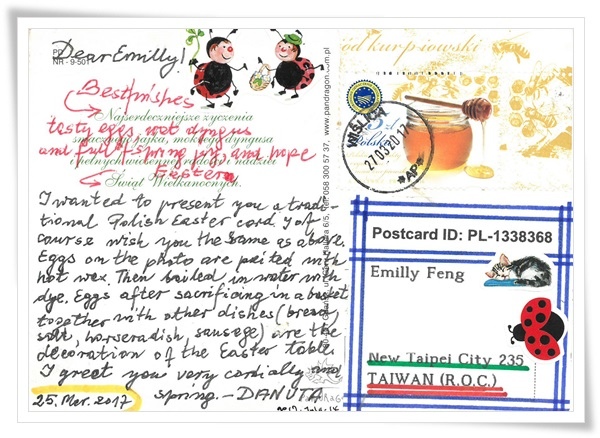 Dear Emilly!
PD
NR - 9-501
Best wishes
Najserdeczniejsze życzenia
tasty eggs, wet dyngus
smacznego jajka, mokrego dyngusa
and full of spring joy and hope
pełnych wiosennej radości i nadziei
Eastern
Świąt Wielkanocnych.
I wanted to present you a tradi-
tional Polish Easter card. I of
course wish you the same as above.
Eggs on the photo are paited with
hot wax. Then boiled in water with
dye. Eggs after sacrificing in a basket
together with other dishes (bread,
salt, horseradish, sausage) are the
decoration of the Easter table.
I greet you very cordially and
spring. - DANUTA
25. Mar. 2017
www.pandragon.com.pl
058 300 57 37,
ód kurpiowski
WIŚLICA
270320 17
*AP*
5 zł
Polska
Postcard ID: PL-1338368
Emilly Feng
New Taipei City 235
TAIWAN (R.O.C.)